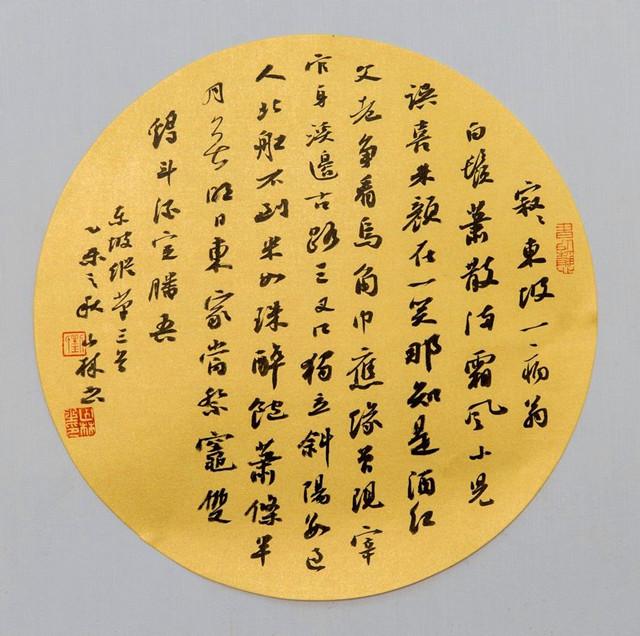 寂〻東坡一病翁
白鬚蕭散滿霜風小兒
誤喜朱顏在一笑那知是酒紅
父老爭看烏角巾應緣曾現宰
官身溪邊古路三叉口獨立斜陽數過
人北船不到米如珠醉飽蕭條半
月無明日東家當祭竈隻
鷄斗酒定膰吾
東坡縱筆三首
乙未之秋山林書